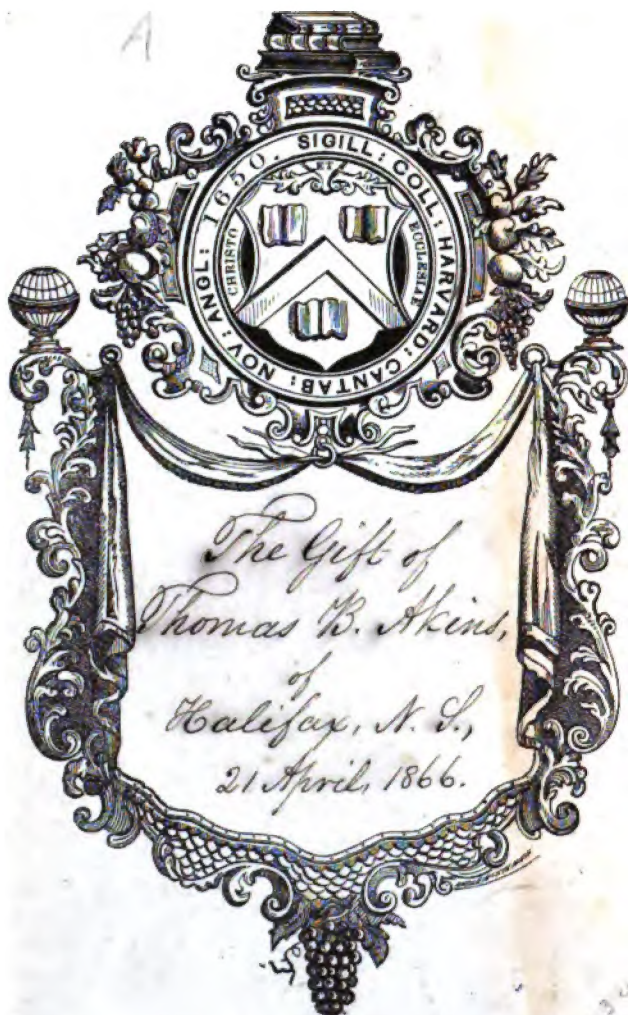 A
SIGILL: COLL: HARVARD: CANTAB: NOV: ANGL: 1650.
ET
CHRISTO
ECCLESIÆ
The Gift of
Thomas B. Akins,
of
Halifax, N. S.,
21 April, 1866.